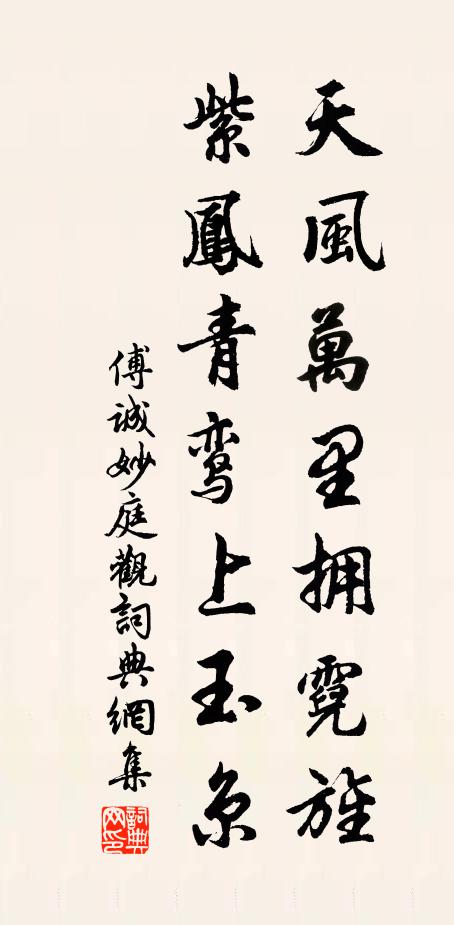 天風萬里拥霓旌
紫鳳青鸾上玉京
傅誠妙庭觀詞典網集
詞典网印